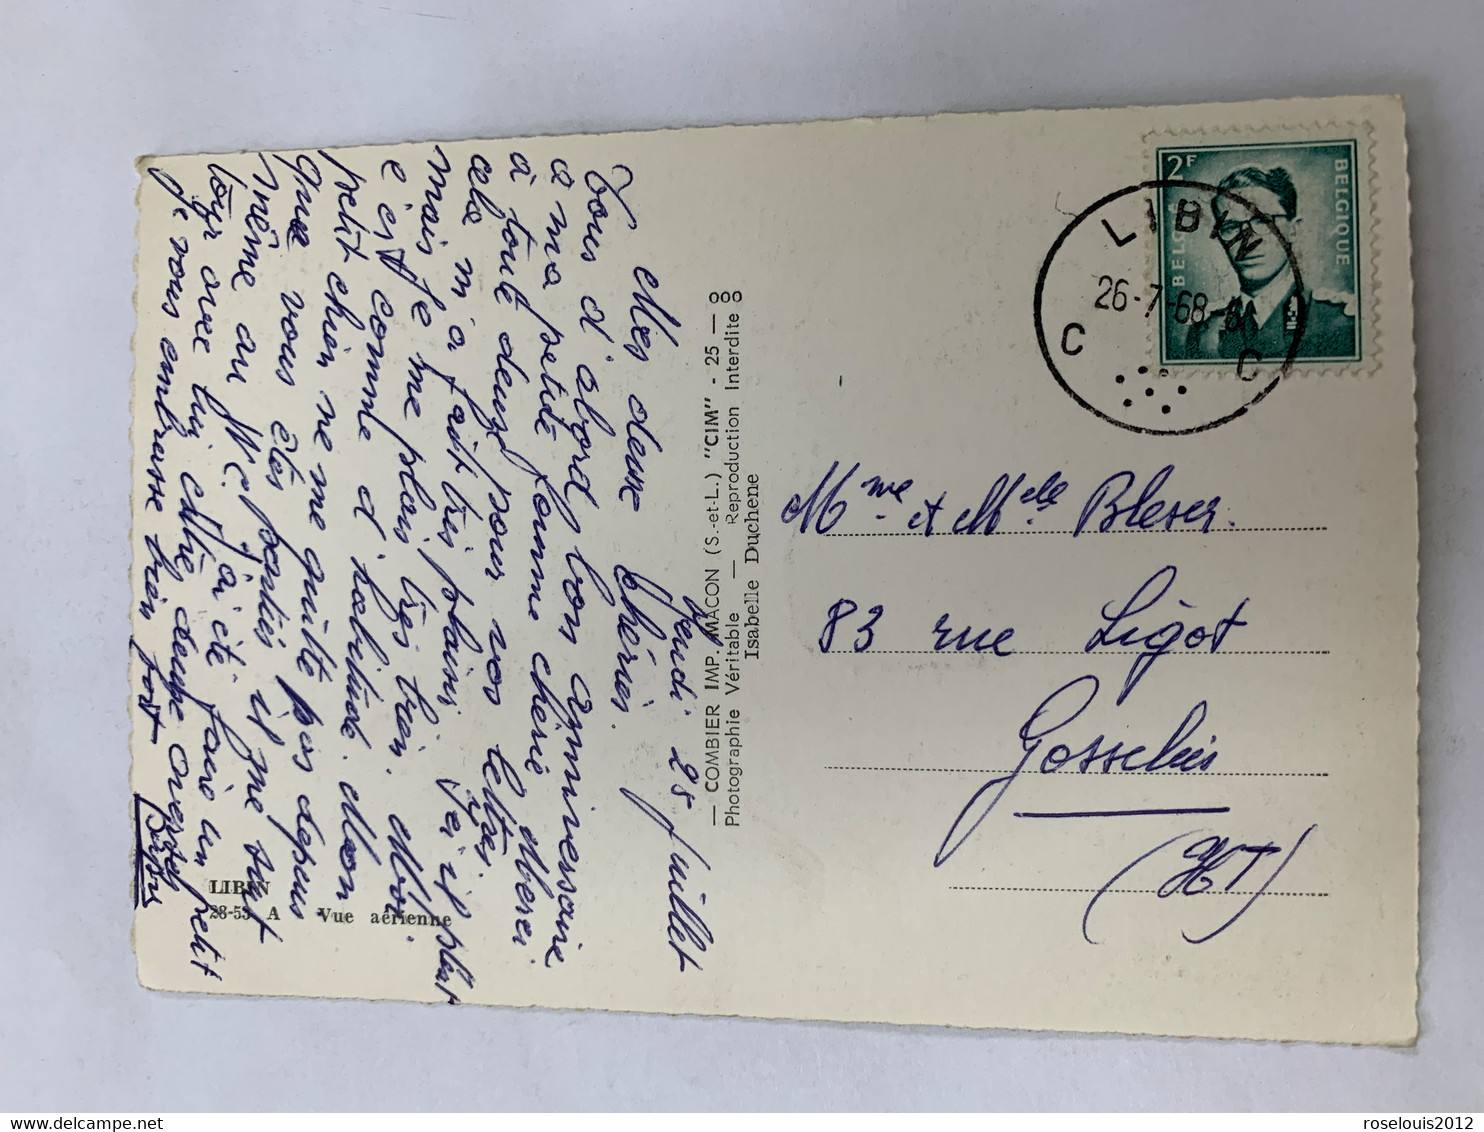 Jeudi 25 Juillet
Mes deux Chéries.
Tous d'abord bon anniversaire
a ma petite femme chérie Merci
à toute deuze pour vos lettres.
cela m'a fait très plaisir Ici il pleut
mais je me plais très bien. Moi.
e est comme d'habitude. Mon
petit chien ne me quitte pas depuis
que vous êtes parties il me suit
même au W C. J'ai été faire un petit
tour avec lui
je vous embrasse bien fort
LIBIN
28-53 A Vue aérienne
— COMBIER IMP. MACON (S.-et-L.) "CIM" - 25 — ooo
Photographie Véritable — Reproduction Interdite o
Isabelle Duchene
BELGIQUE
2F
BELG
LIBIN
26-7-68
C C
Mme et Mlle Bleser.
83 rue Ligot
Gosselies
(HT)
roselouis2012